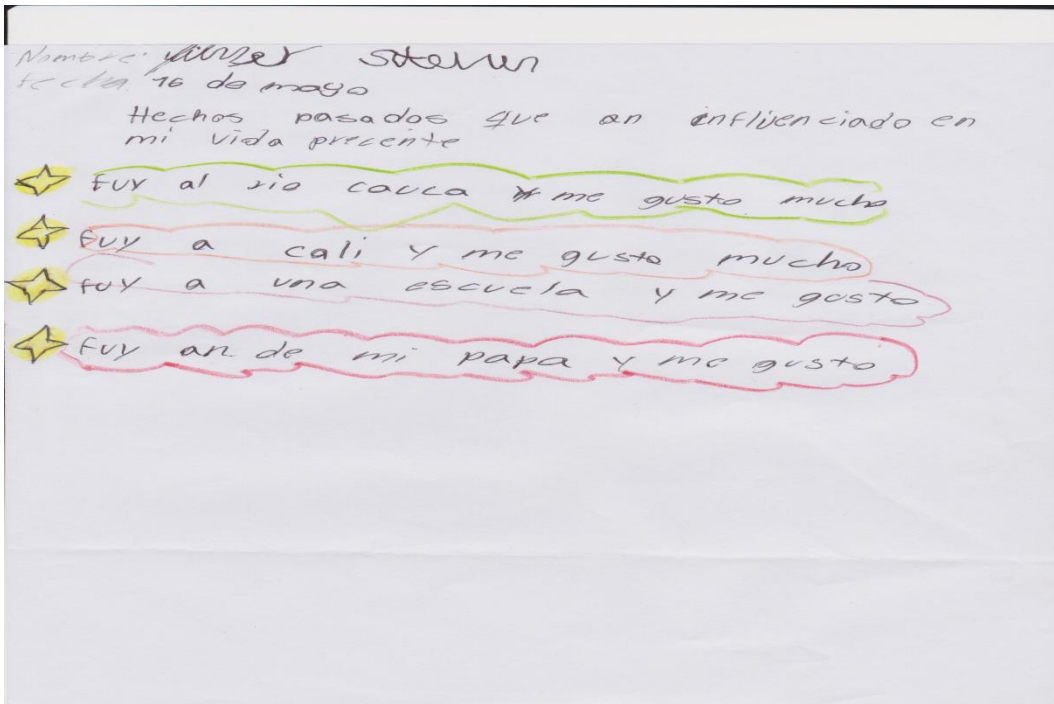 Nombre: Steven
fecha 16 de mayo
Hechos pasados que an influenciado en
mi vida precente
fuy al rio cauca y me gusto mucho
fuy a cali y me gusto mucho
fuy a una escuela y me gusto
fuy an de mi papa y me gusto